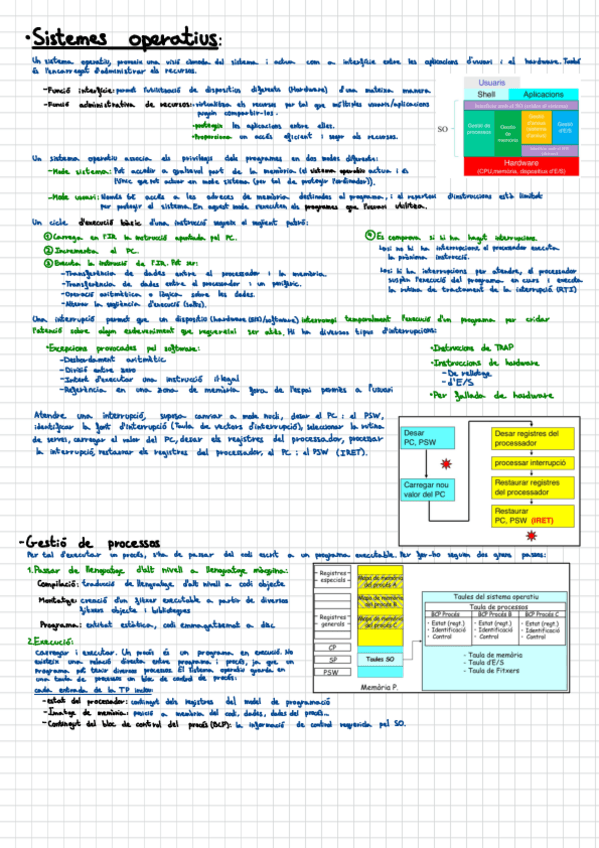 • Sistemes operatius:
Un sistema operatiu, proveeix una visió elevada del sistema i actua com a interfície entre les aplicacions d'usuari i el hardware. També
és l'encarregat d'administrar els recursos.
- Funció interfície: permet l'utilització de dispositius diferents (Hardware) d'una mateixa manera.
- Funció administrativa de recursos: virtualitza els recursos per tal que múltiples usuaris/aplicacions
puguin compartir-los:
• protegeix les aplicacions entre elles.
• Proporciona un accés eficient i segur als recursos.
Usuaris
Shell Aplicacions
SO
Gestió de processos
Gestió de memòria
Gestió d'E/S
Hardware
(CPU, memòria, dispositius d'E/S)
Un sistema operatiu associa els privilegis dels programes en dos modes diferents:
- Mode sistema: Pot accedir a qualsevol part de la memòria (el sistema operatiu actua i és
l'únic que pot actuar en mode sistema (per tal de protegir l'ordinador)).
- Mode usuari: Només té accés a les adreces de memòria destinades al programa, i el repertori d'instruccions està limitat
per protegir el sistema. En aquest mode s'executen els programes que l'usuari utilitza.
Un cicle d'execució bàsic d'una instrucció segueix el següent patró:
① Carrega en l'IR la instrucció apuntada pel PC.
② Incrementa el PC.
③ Executa la instrucció de l'IR. Pot ser:
- Transferència de dades entre el processador i la memòria.
- Transferència de dades entre el processador i un perifèric.
- Operació aritmètica o lògica sobre les dades.
- Alterar la seqüència d'execució (salts).
④ Es comprova si hi ha hagut interrupcions.
Los: no hi ha interrupcions, el processador executa
la pròxima instrucció.
Los: si hi ha interrupcions per atendre, el processador
suspèn l'execució del programa en curs i executa
la rutina de tractament de la interrupció (RTI)
Una interrupció permet que un dispositiu (hardware (E/S)/software) interrompi temporalment l'execució d'un programa per cridar
l'atenció sobre algun esdeveniment que requereixi ser atès. Hi ha diversos tipus d'interrupcions:
• Excepcions provocades pel software:
- Desbordament aritmètic
- Divisió entre zero
- Intent d'executar una instrucció il·legal
- Referència en una zona de memòria fora de l'espai permès a l'usuari
• Instruccions de TRAP
• Instruccions de hardware
- De rellotge
- d'E/S
• Per fallada de hardware
Atendre una interrupció, suposa canviar a mode nucli, desar el PC i el PSW,
identificar la font d'interrupció (Taula de vectors d'interrupció), seleccionar la rutina
de servei, carregar el valor del PC, desar els registres del processador, processar
la interrupció, restaurar els registres del processador, el PC i el PSW (IRET).
Desar
PC, PSW
Carregar nou
valor del PC
Desar registres del
processador
processar interrupció
Restaurar registres
del processador
Restaurar
PC, PSW (IRET)
- Gestió de processos
Per tal d'executar un procés, s'ha de passar del codi escrit a un programa executable. Per fer-ho seguim dos grans passos:
1. Passar de llenguatge d'alt nivell a llenguatge màquina:
Compilació: traducció de llenguatge d'alt nivell a codi objecte
Muntatge: creació d'un fitxer executable a partir de diversos
fitxers objecte i biblioteques
Programa: entitat estàtica, codi emmagatzemat a disc
2. Execució:
Carregar i executar. Un procés és un programa en execució. No
existeix una relació directa entre programa i procés, ja que un
programa pot tenir diversos processos. El sistema operatiu guarda en
una taula de processos un bloc de control de procés:
cada entrada de la TP inclou:
- estat del processador: contingut dels registres del model de programació
- Imatge de memòria: posició a memòria del codi, dades, dates del procés...
- Contingut del bloc de control del procés (BCP): la informació de control requerida pel SO.
Registres
especials
Registres
generals
CP
SP
PSW
Mapa de memòria
del procés A
Mapa de memòria
del procés B
Mapa de memòria
del procés C
Taules SO
Memòria P.
Taules del sistema operatiu
Taula de processos
BCP Procés A BCP Procés B BCP Procés C
• Estat (regt.) • Estat (regt.) • Estat (regt.)
• Identificació • Identificació • Identificació
• Control • Control • Control
- Taula de memòria
- Taula d'E/S
- Taula de Fitxers